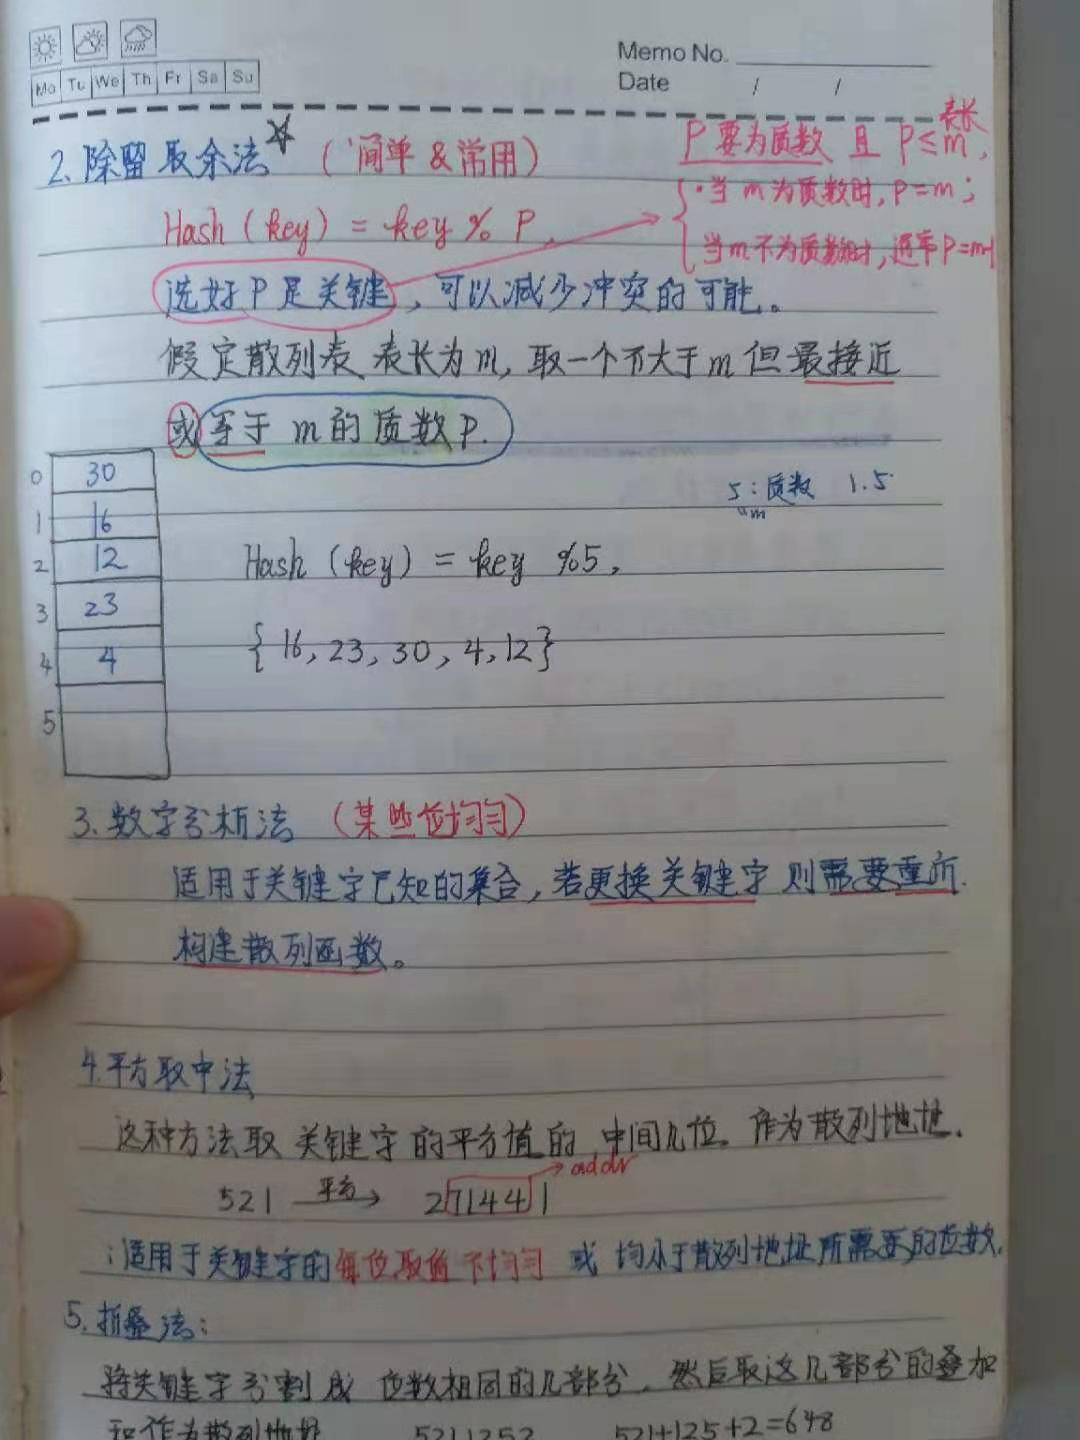 Memo No.
Mo Tu We Th Fr Sa Su
Date / /
2.除留取余法 (简单&常用)
P要为质数 且 P≤m,
表长
Hash (key) = key % P,
·当m为质数时,P=m;
当m不为质数时,通常P=m-1
选好P是关键,可以减少冲突的可能。
假定散列表 表长为m,取一个不大于m但最接近
或等于m的质数P.
5:质数 1.5
m
0 30
1 16
2 12
3 23
4 4
5
Hash (key) = key %5,
{16,23,30,4,12}
3.数字分析法 (某些位均匀)
适用于关键字已知的集合,若更换关键字 则需要重新
构建散列函数。
4.平方取中法
这种方法取 关键字的平方值的 中间几位 作为散列地址.
addr
521 平方→ 271441
:适用于关键字的每位取值不均匀 或 均小于散列地址所需要的位数.
5.折叠法:
将关键字分割成 位数相同的几部分,然后取这几部分的叠加
和作为散列地址 5211252 521+125+2=648